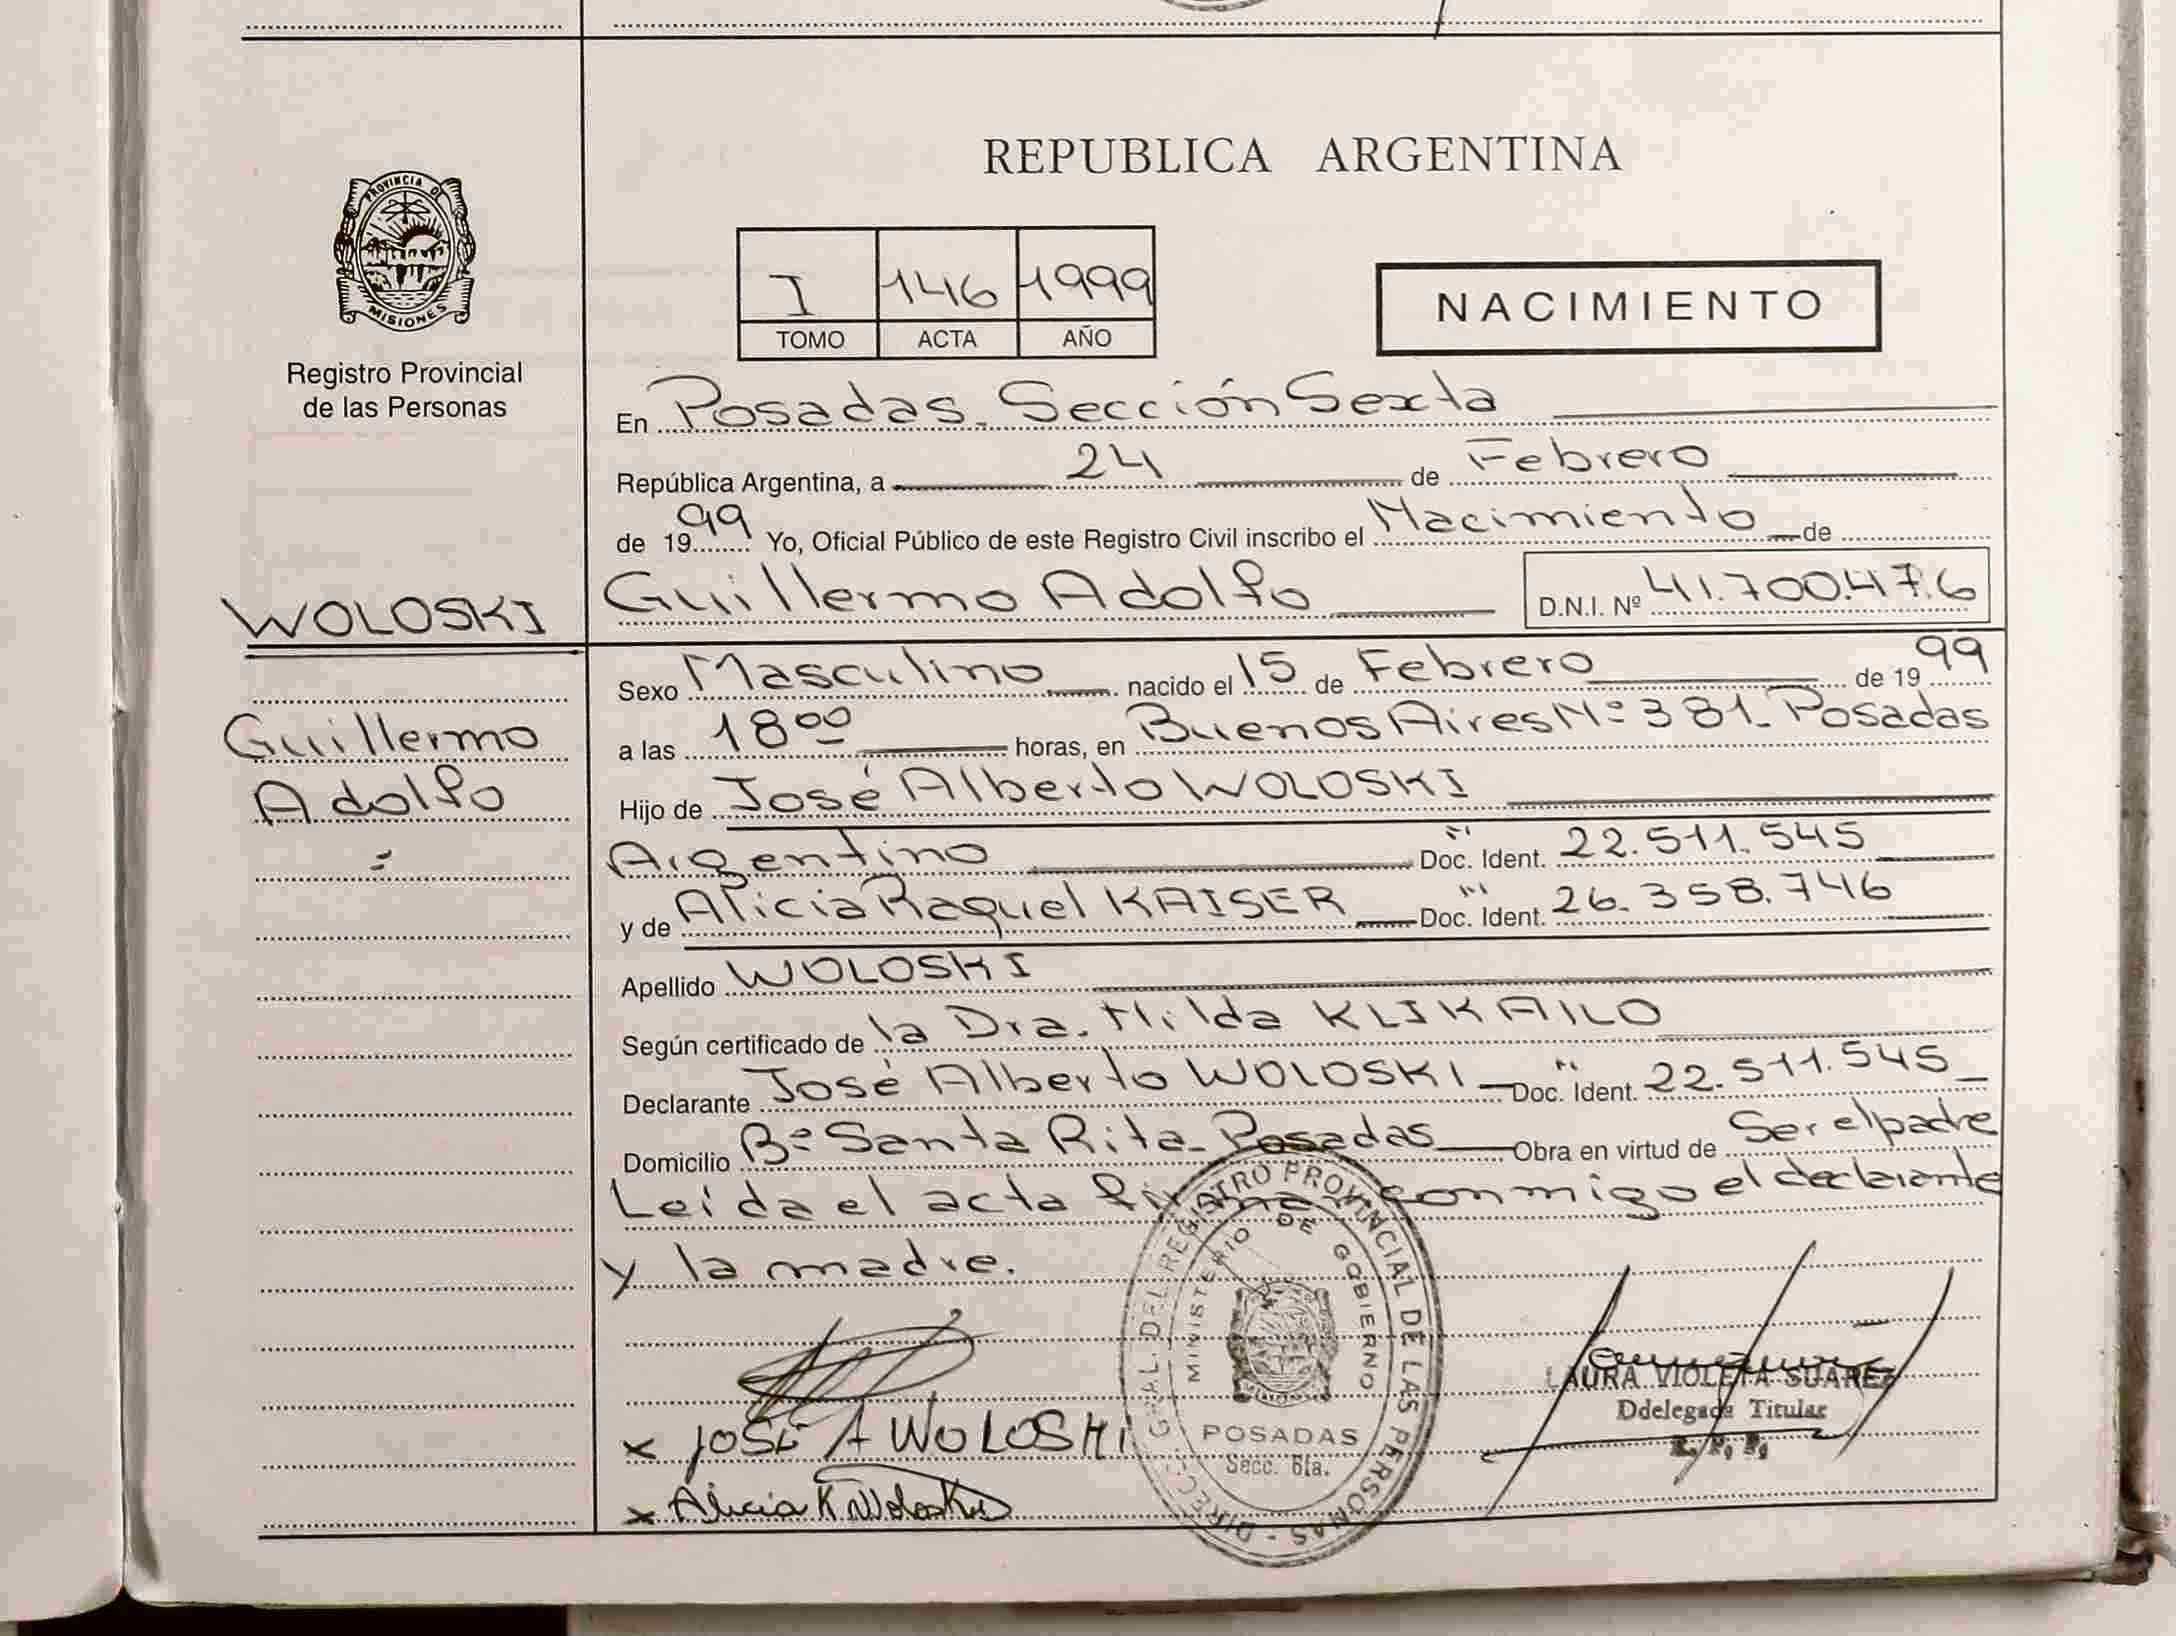 REPUBLICA ARGENTINA
PROVINCIA DE
MISIONES
Registro Provincial
de las Personas
I 146 1999
TOMO ACTA AÑO
NACIMIENTO
En Posadas. Sección Sexta
República Argentina, a 24 de Febrero
de 1999 Yo, Oficial Público de este Registro Civil inscribo el Nacimiento de
WOLOSKI
Guillermo Adolfo D.N.I. Nº 41.700.476
Guillermo
Adolfo
Sexo Masculino nacido el 15 de Febrero de 1999
a las 18 00 horas, en Buenos Aires Nº 381. Posadas
Hijo de José Alberto WOLOSKI
Argentino Doc. Ident. 22.511.545
y de Alicia Raquel KAISER Doc. Ident. 26.358.746
Apellido WOLOSKI
Según certificado de la Dra. Hilda KLIKAILO
Declarante José Alberto WOLOSKI Doc. Ident. 22.511.545
Domicilio Bº Santa Rita. Posadas Obra en virtud de Ser el padre
Leída el acta firman conmigo el declarante
y la madre.
DIRECC. GRAL. DEL REGISTRO PROVINCIAL DE LAS PERSONAS
MINISTERIO DE GOBIERNO
POSADAS
Secc. 6ta.
LAURA VIOLETA SUAREZ
Ddelegada Titular
x JOSÉ A WOLOSKI
x Alicia K. Woloski